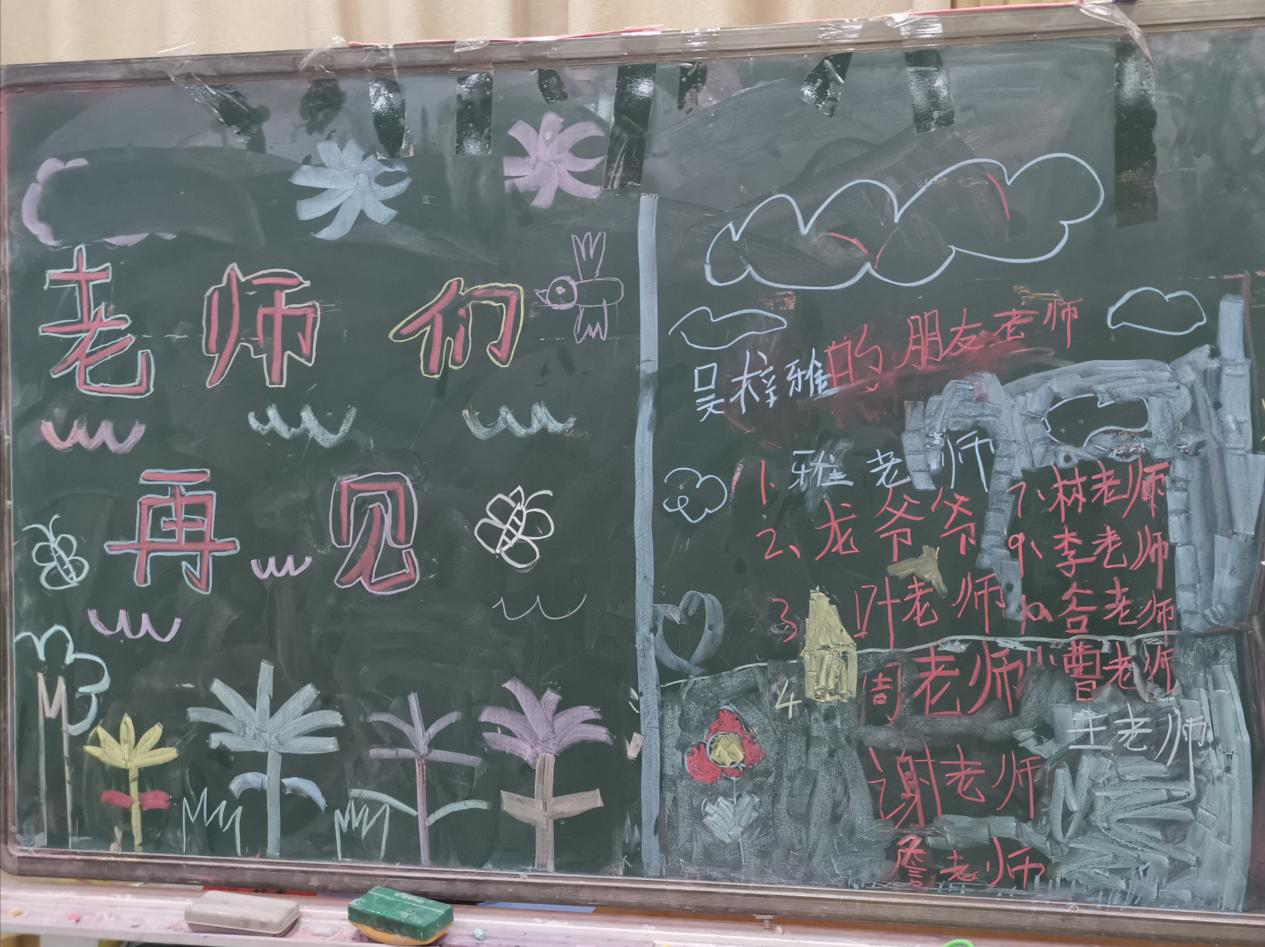 老师们
再见
吴梓雅的朋友老师
1、雅老师 7、林老师
2、龙爷爷 9、李老师
3 叶老师 10谷老师
4 周老师 11曹老师
王老师
谢老师
詹老师